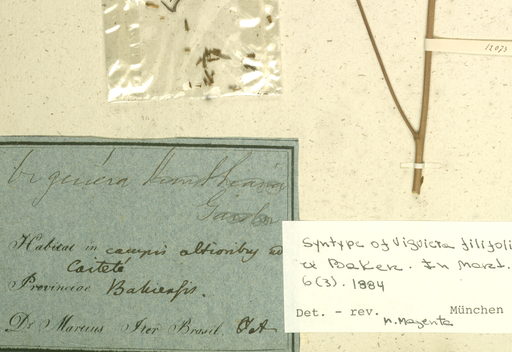 12073
Viguiera
Gardn
Habitat in campis altioribus ad
Caiteté
Provinciae Bahiensis.
Dr Martius Iter Brasil.
Syntype of Viguiera filifoli
Baker. In Mart.
6(3). 1884
Det. - rev. München
n. Magenta